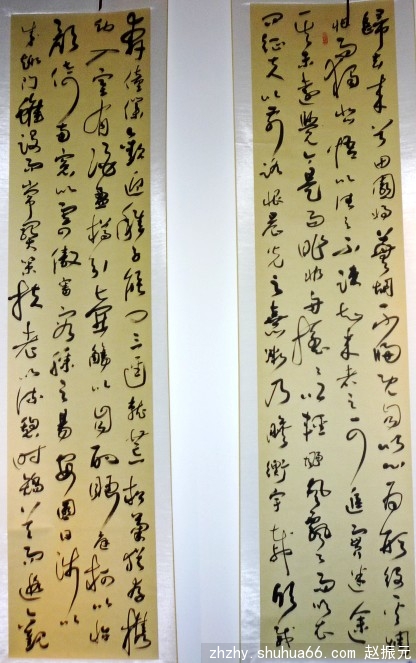 歸去来兮田園将蕪胡不歸既自以心為形役奚惆
悵而獨悲悟以往之不諫知来者之可追實迷途
其未遠覺今是而昨非舟摇摇以輕颺風飄飄而吹衣
問征夫以前路恨晨光之熹微乃瞻衡宇載欣載
奔僮僕歡迎稚子候門三逕就荒松菊猶存携
幼入室有酒盈樽引壺觴以自酌眄庭柯以怡
顔倚南窗以寄傲審容膝之易安園日涉以
成趣門雖設而常關策扶老以流憩時矯首而遐觀
zhzhy.shuhua66.com 赵振元